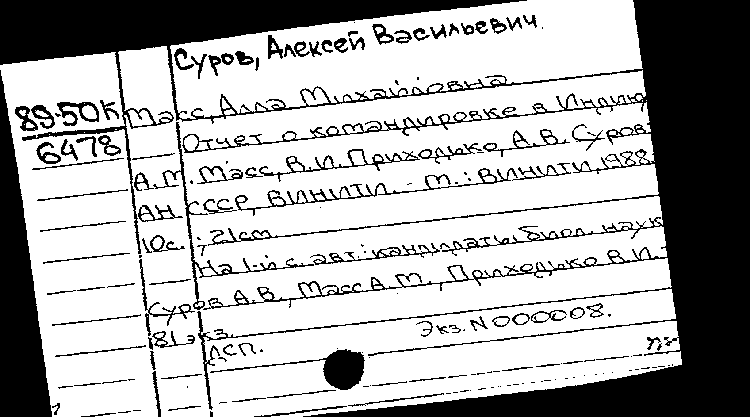 Суров, Алексей Васильевич.
89-50К
6478
Масс, Алла Михайловна
Отчет о командировке в Индию
А. М. Масс, В. И. Приходько, А. В. Суров.
АН СССР, ВИНИТИ. - М. : ВИНИТИ, 1988.
10с. ; 21см
На 1-й с. авт.: кандидаты биол. наук
Суров А.В., Масс А.М., Приходько В.И.
81 экз.
ДСП. Экз. N 000008.